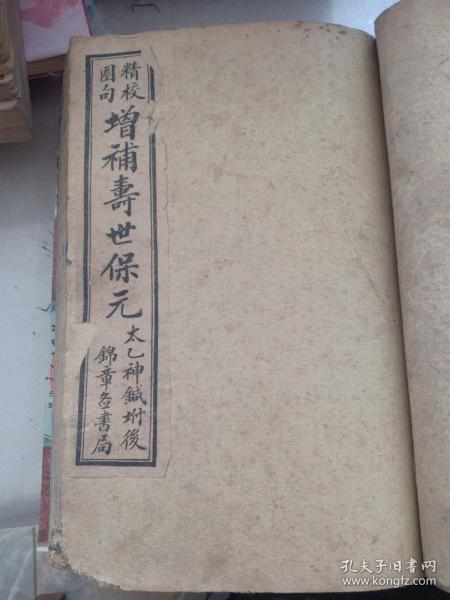 精校
圈句
增補壽世保元
太乙神鍼坿後
錦章書局
孔夫子旧书网
www.kongfz.com